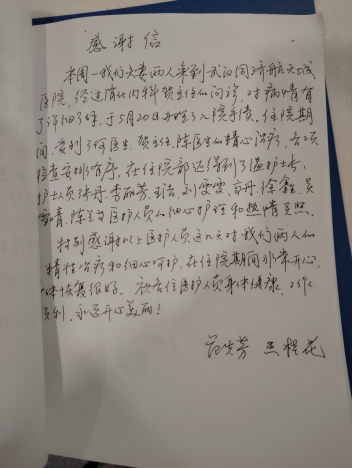 感谢信
本周一我们夫妻两人来到武汉同济航天城
医院,经过消化内科贺主任的问诊,对病情有
了详细了解,于5月20日办理了入院手续,住院期
间,受到了何医生、贺主任、陈医生的精心治疗,各项
检查安排有序,在住院部还得到了温护士长,
护士员张丹、李丽芳、王洁、刘雯雯、官丹、徐鑫、吴
雪晴、陈兰等医护人员的细心护理和热情关照。
特别感谢以上医护人员这几天对我们两人的
精心治疗和细心呵护,在住院期间非常开心,
身体恢复很好。祝各位医护人员身体健康,工作
顺利,永远开心美丽!
桂花